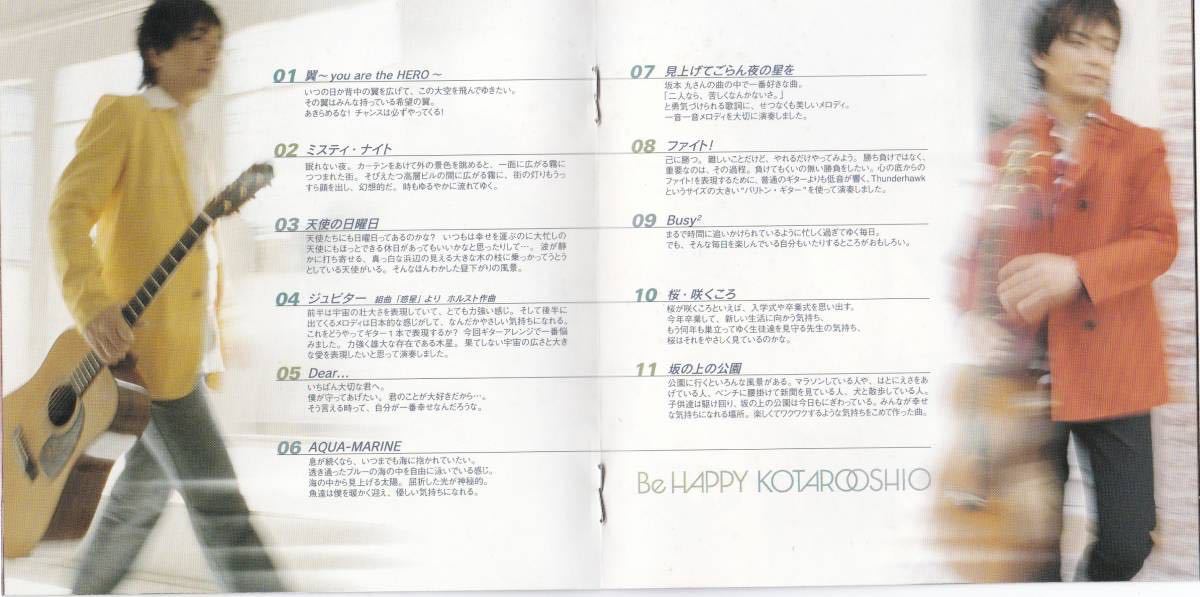 01 翼～you are the HERO～
いつの日か背中の翼を広げて、この大空を飛んでゆきたい。
その翼はみんな持っている希望の翼。
あきらめるな! チャンスは必ずやってくる!
02 ミスティ・ナイト
眠れない夜。カーテンをあけて外の景色を眺めると、一面に広がる霧に
つつまれた街。そびえたつ高層ビルの間に広がる霧に、街の灯りもうっ
すら顔を出し、幻想的だ。時もゆるやかに流れてゆく。
03 天使の日曜日
天使たちにも日曜日ってあるのかな? いつもは幸せを運ぶのに大忙しの
天使にもほっとできる休日があってもいいかなと思ったりして…。波が静
かに打ち寄せる、真っ白な浜辺の見える大きな木の枝に乗っかってうとう
としている天使がいる。そんなほんわかした昼下がりの風景。
04 ジュピター 組曲「惑星」より ホルスト作曲
前半は宇宙の壮大さを表現していて、とても力強い感じ。そして後半に
出てくるメロディは日本的な感じがして、なんだかやさしい気持ちになれる。
これをどうやってギター1本で表現するか? 今回ギターアレンジで一番悩
みました。力強く雄大な存在である木星。果てしない宇宙の広さと大き
な愛を表現したいと思って演奏しました。
05 Dear...
いちばん大切な君へ。
僕が守ってあげたい。君のことが大好きだから…。
そう言える時って、自分が一番幸せなんだろうな。
06 AQUA-MARINE
息が続くなら、いつまでも海に抱かれていたい。
透き通ったブルーの海の中を自由に泳いでいる感じ。
海の中から見上げる太陽。屈折した光が神秘的。
魚達は僕を暖かく迎え、優しい気持ちになれる。
07 見上げてごらん夜の星を
坂本 九さんの曲の中で一番好きな曲。
「二人なら、苦しくなんかないさ。」
と勇気づけられる歌詞に、せつなくも美しいメロディ。
一音一音メロディを大切に演奏しました。
08 ファイト!
己に勝つ。難しいことだけど、やれるだけやってみよう。勝ち負けではなく、
重要なのは、その過程。負けてもくいの無い勝負をしたい。心の底からの
ファイト!を表現するために、普通のギターよりも低音が響く、Thunderhawk
というサイズの大きい“バリトン・ギター”を使って演奏しました。
09 Busy²
まるで時間に追いかけられているように忙しく過ぎてゆく毎日。
でも、そんな毎日を楽しんでいる自分もいたりするところがおもしろい。
10 桜・咲くころ
桜が咲くころといえば、入学式や卒業式を思い出す。
今年卒業して、新しい生活に向かう気持ち、
もう何年も巣立ってゆく生徒達を見守る先生の気持ち、
桜はそれをやさしく見ているのかな。
11 坂の上の公園
公園に行くといろんな風景がある。マラソンしている人や、はとにえさをあ
げている人、ベンチに腰掛けて新聞を見ている人、犬と散歩している人。
子供達は駆け回り、坂の上の公園は今日もにぎわっている。みんなが幸せ
な気持ちになれる場所。楽しくてワクワクするような気持ちをこめて作った曲。
Be HAPPY KOTARO OSHIO